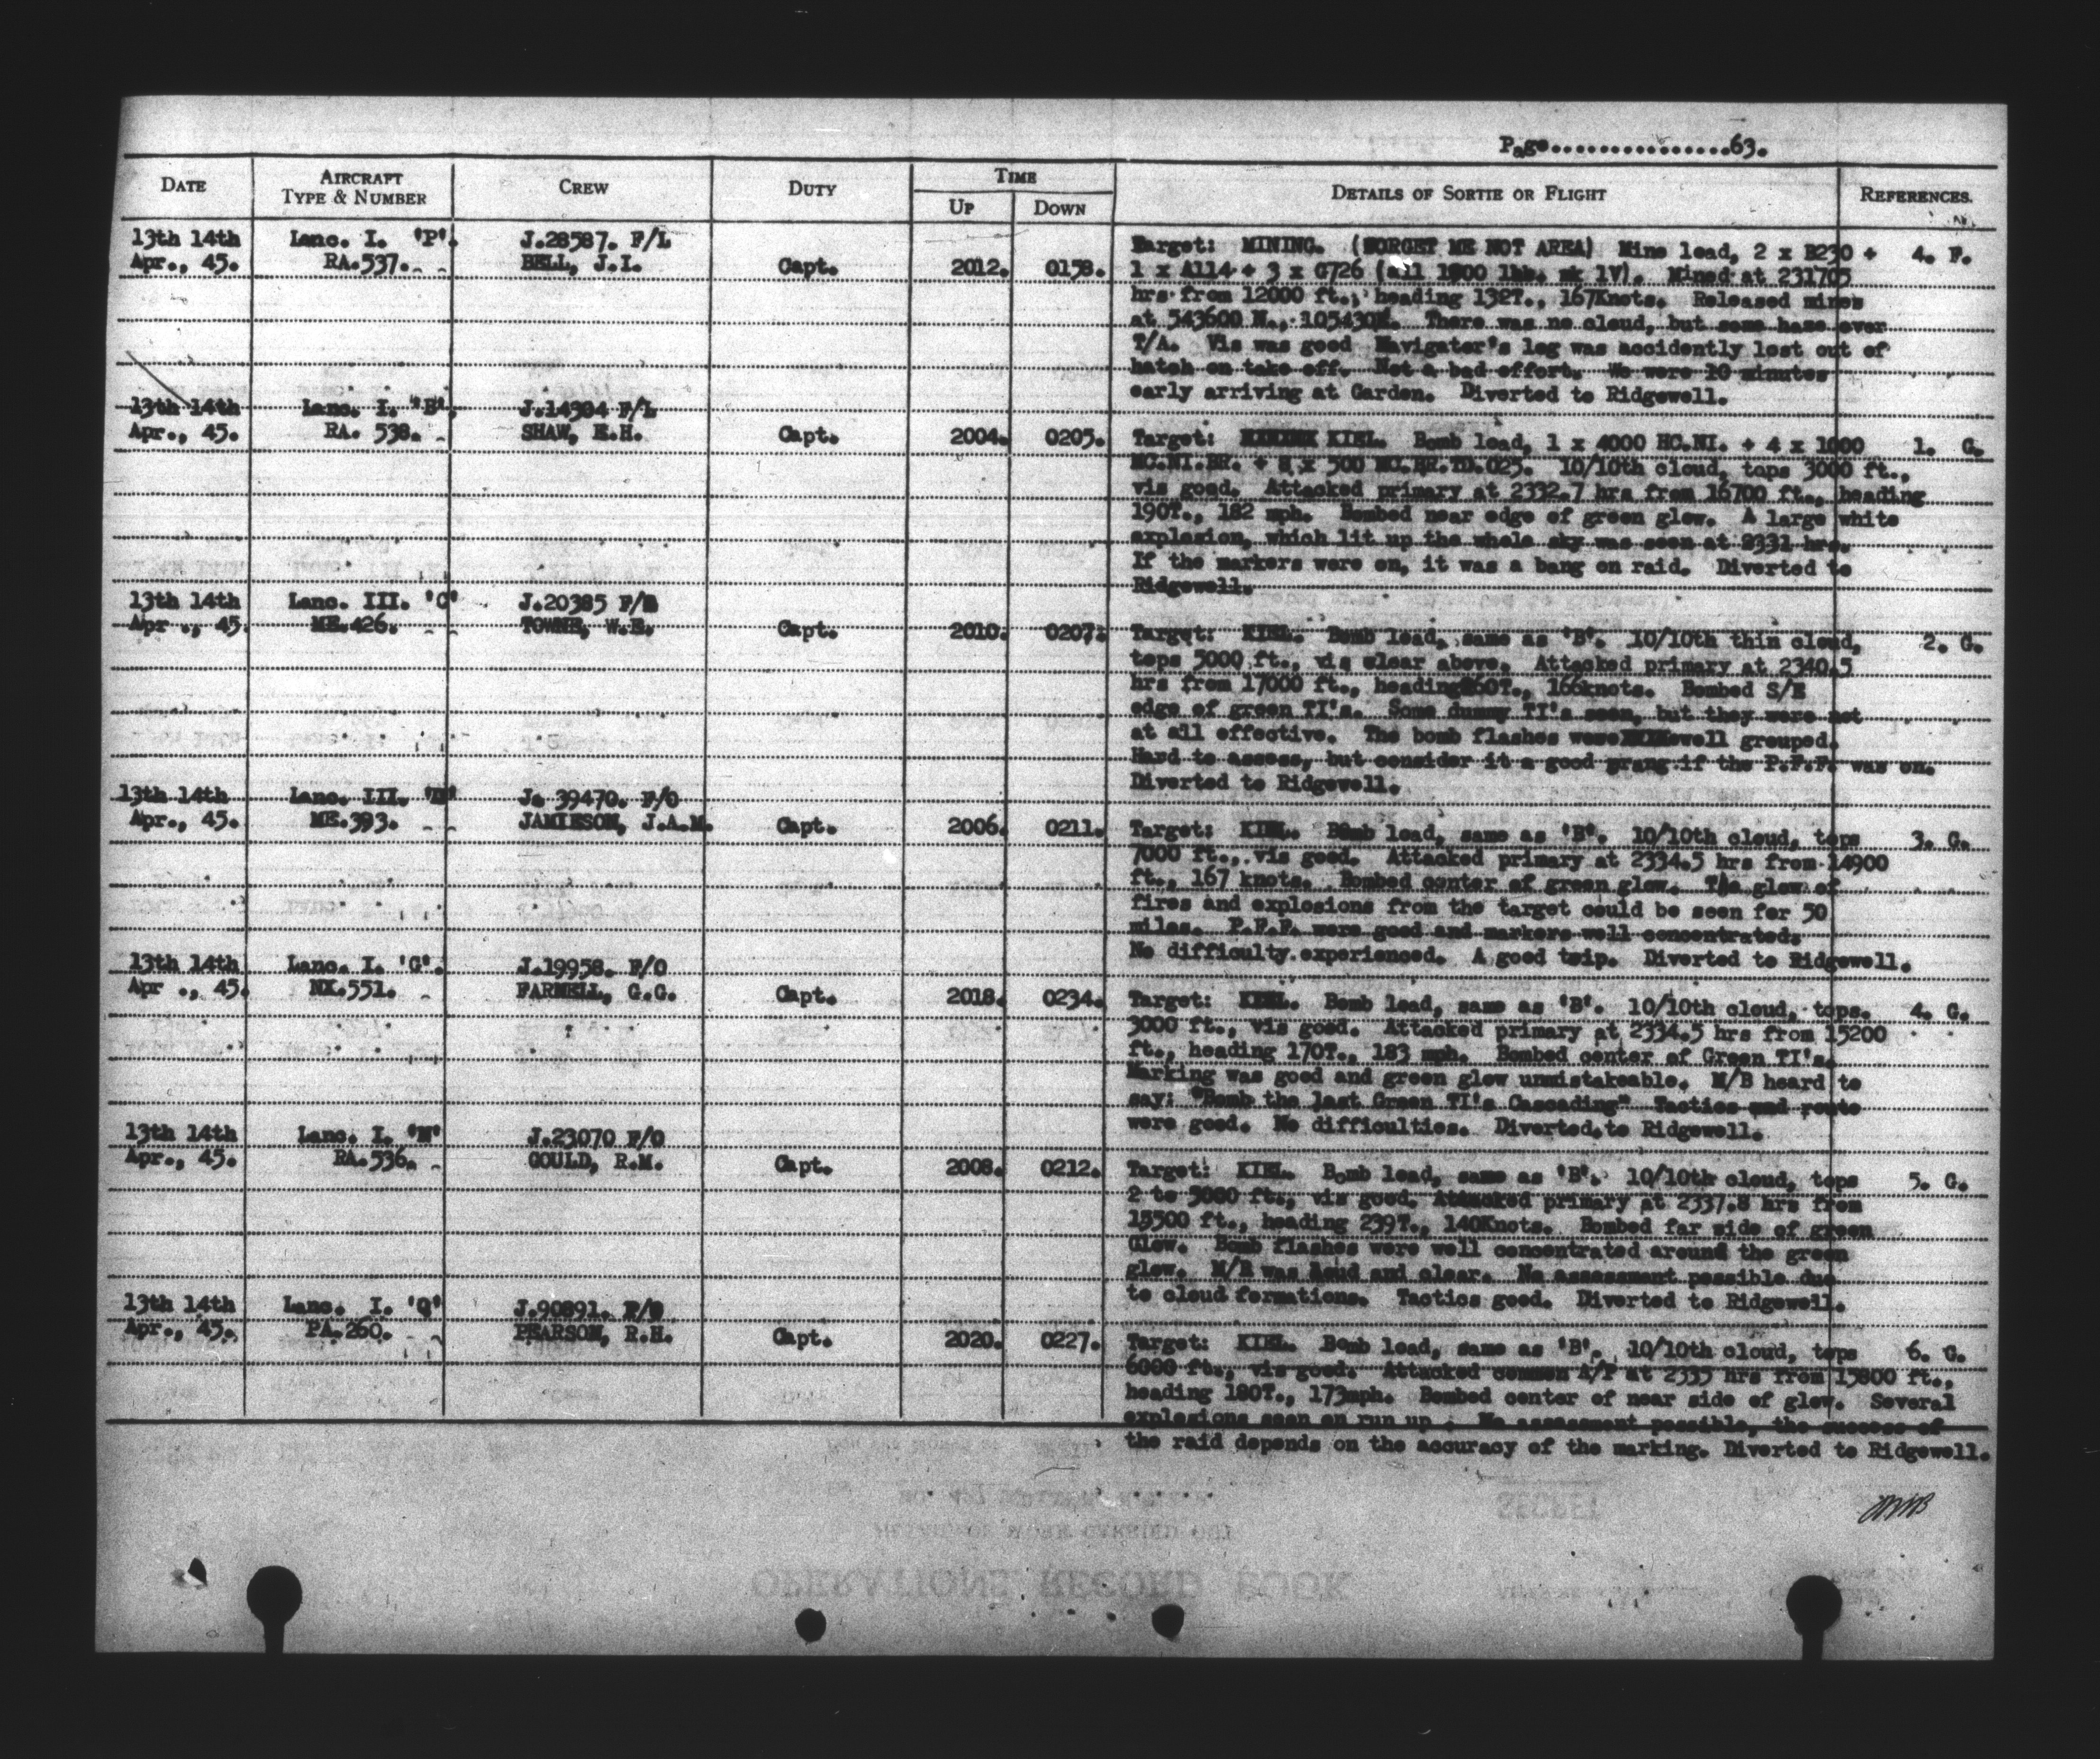 Page................63.
DATE
AIRCRAFT
TYPE & NUMBER
CREW
DUTY
TIME
UP
DOWN
DETAILS OF SORTIE OR FLIGHT
REFERENCES.
13th 14th Lanc. I. 'P'. J.28587. F/L
Apr., 45. RA.537. BELL, J.I. Capt. 2012. 0158.
Target: MINING. (FORGET ME NOT AREA) Mine load, 2 x B230 + 4. F.
1 x A114 + 3 x G726 (all 1000 lbs. mk 1V). Mined at 231705
hrs from 12000 ft., heading 132T., 167Knots. Released mines
at 543600 N., 105430E. There was no cloud, but some haze over
T/A. Vis was good Navigator's log was accidently lost out of
hatch on take off. Not a bad effort. We were 10 minutes
early arriving at Garden. Diverted to Ridgewell.
13th 14th Lanc. I. 'B'. J.14304 F/L
Apr., 45. RA. 538. SHAW, E.H. Capt. 2004. 0205.
Target: KIEL. Bomb load, 1 x 4000 HC.NI. + 4 x 1000 1. G.
MC.NI.BR. + 8 x 500 MC.BR.TD.025. 10/10th cloud, tops 3000 ft.,
vis good. Attacked primary at 2332.7 hrs from 16700 ft., heading
190T., 182 mph. Bombed near edge of green glow. A large white
explosion, which lit up the whole sky was seen at 2331 hrs.
If the markers were on, it was a bang on raid. Diverted to
Ridgewell.
13th 14th Lanc. III. 'C' J.20385
Apr ., 45. ME.426. TOWNE, W.E. Capt. 2010. 0207.
Target: KIEL. Bomb load, same as 'B'. 10/10th thin cloud, 2. G.
tops 5000 ft., vis clear above. Attacked primary at 2340.5
hrs from 17000 ft., heading 160T., 166knots. Bombed S/E
edge of green TI's. Some dummy TI's seen, but they were not
at all effective. The bomb flashes were well grouped.
Hard to assess, but consider it a good prang if the P.F.F. was on.
Diverted to Ridgewell.
13th 14th Lanc. III. 'D' J. 39470. F/O
Apr., 45. ME.393. JAMIESON, J.A.M. Capt. 2006. 0211.
Target: KIEL. Bomb load, same as 'B'. 10/10th cloud, tops 3. G.
7000 ft., vis good. Attacked primary at 2334.5 hrs from 14900
ft., 167 knots. Bombed center of green glow. The glow of
fires and explosions from the target could be seen for 50
miles. P.F.F. were good and markers well concentrated.
No difficulty experienced. A good trip. Diverted to Ridgewell.
13th 14th Lanc. I. 'G'. J.19958. F/O
Apr ., 45. NX.551. FARNELL, G.G. Capt. 2018. 0234.
Target: KIEL. Bomb load, same as 'B'. 10/10th cloud, tops. 4. G.
3000 ft., vis good. Attacked primary at 2334.5 hrs from 15200
ft., heading 170T., 183 mph. Bombed center of Green TI's.
Marking was good and green glow unmistakeable. M/B heard to
say: "Bomb the last Green TI's Cascading" Tactics and route
were good. No difficulties. Diverted to Ridgewell.
13th 14th Lanc. I. J.23070 F/O
Apr., 45. RA.536. GOULD, R.M. Capt. 2008. 0212.
Target: KIEL. Bomb load, same as 'B'. 10/10th cloud, tops 5. G.
2 to 5000 ft., vis good. Attacked primary at 2337.8 hrs from
15500 ft., heading 239T., 140Knots. Bombed far side of green
Glow. Bomb flashes were well concentrated around the green
glow. M/B was loud and clear. No assessment possible due
to cloud formations. Tactics good. Diverted to Ridgewell.
13th 14th Lanc. I. 'Q' J.90891. F/O
Apr., 45. PA.260. PEARSON, R.H. Capt. 2020. 0227.
Target: KIEL. Bomb load, same as 'B'. 10/10th cloud, tops 6. G.
6000 ft., vis good. Attacked common A/P at 2335 hrs from 15800 ft.,
heading 180T., 173mph. Bombed center of near side of glow. Several
explosions seen on run up. No assessment possible, the success of
the raid depends on the accuracy of the marking. Diverted to Ridgewell.
SECRET
OPERATIONS RECORD BOOK